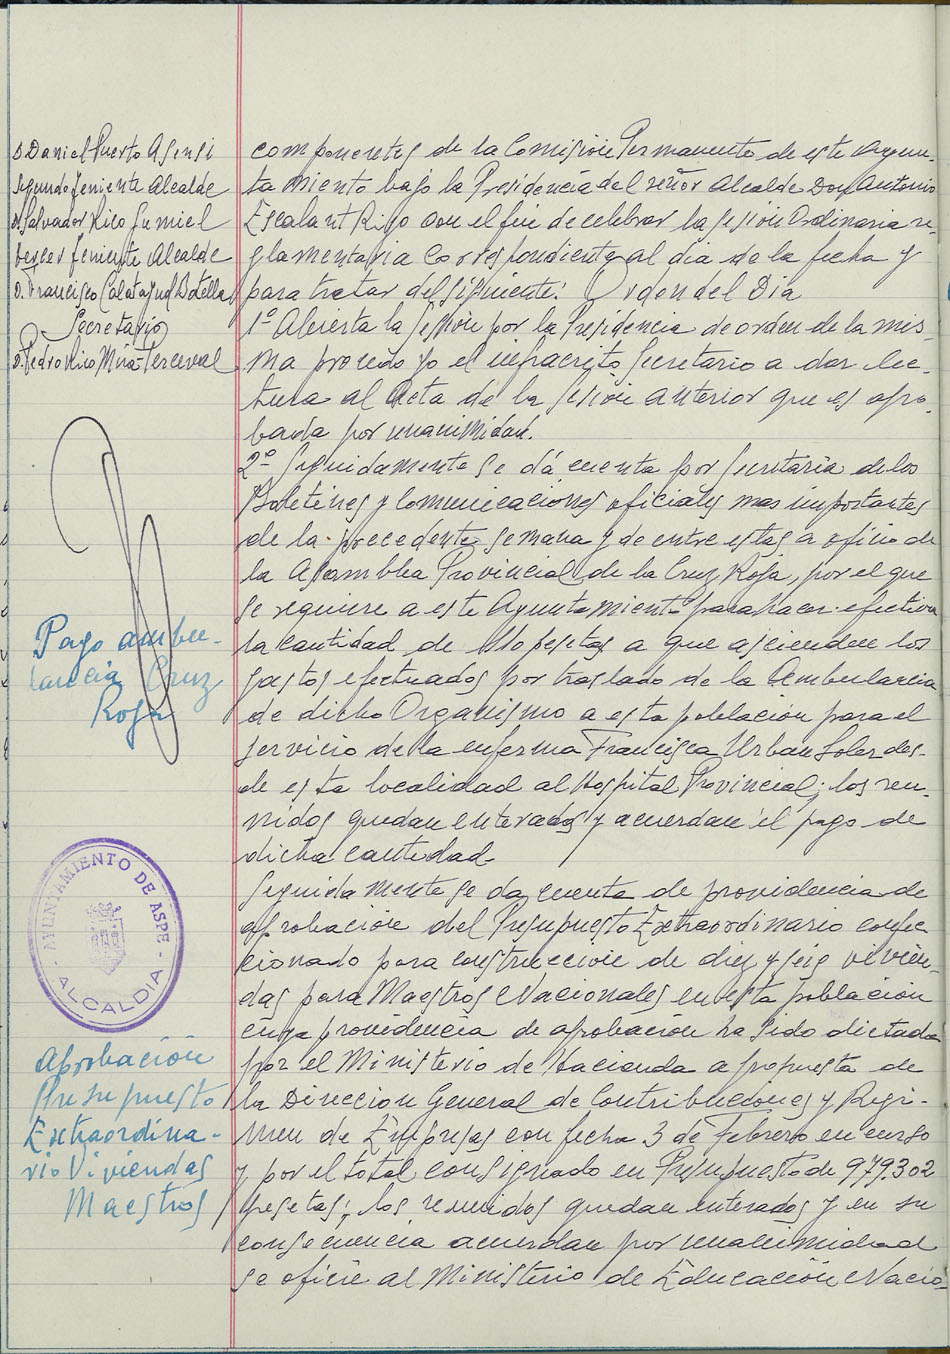 D. Daniel Puerto Asensi
Segundo Teniente Alcalde
D. Salvador Rico Gumiel
tercer Teniente Alcalde
D. Francisco Calatayud Botella
Secretario
D. Pedro Rico Mira-Perceval
componentes de la Comisión Permanente de este Ayun-
tamiento bajo la Presidencia del señor Alcalde Don Antonio
Escalant Rizo con el fin de celebrar la sesión Ordinaria re-
glamentaria correspondiente al dia de la fecha y
para tratar del siguiente: Orden del Dia
1º Abierta la sesión por la Presidencia de orden de la mis-
ma procedo yo el infrascrito Secretario a dar lec-
tura al Acta de la sesión anterior que es apro-
bada por unanimidad.
2º Seguidamente se dá cuenta por Secretaria de los
Boletines y Comunicaciones oficiales mas importantes
de la precedente semana y de entre estas a oficio de
la Asamblea Provincial de la Cruz Roja, por el que
se requiere a este Ayuntamiento para hacer efectiva
la cantidad de 110 pesetas a que ascienden los
gastos efectuados por traslado de la Ambulancia
de dicho Organismo a esta población para el
servicio de la enferma Francisca Urban Soler des-
de esta localidad al Hospital Provincial; los reu-
nidos quedan enterados y acuerdan el pago de
dicha cantidad.
Seguidamente se da cuenta de providencia de
aprobación del Presupuesto Extraordinario confec
cionado para construcción de diez y seis vivien-
das para Maestros Nacionales en esta población
cuya providencia de aprobación ha sido dictada
por el Ministerio de Hacienda a propuesta de
la Dirección General de Contribuciones y Regi-
men de Empresas con fecha 3 de Febrero en curso
y por el total consignado en Presupuesto de 979.302
pesetas; los reunidos quedan enterados y en su
consecuencia acuerdan por unanimidad
se oficie al Ministerio de Educación Nacio-
Pago ambu-
lancia Cruz
Roja
AYUNTAMIENTO DE ASPE
- ALCALDIA -
Aprobación
Presupuesto
Extraordina-
rio Viviendas
Maestros